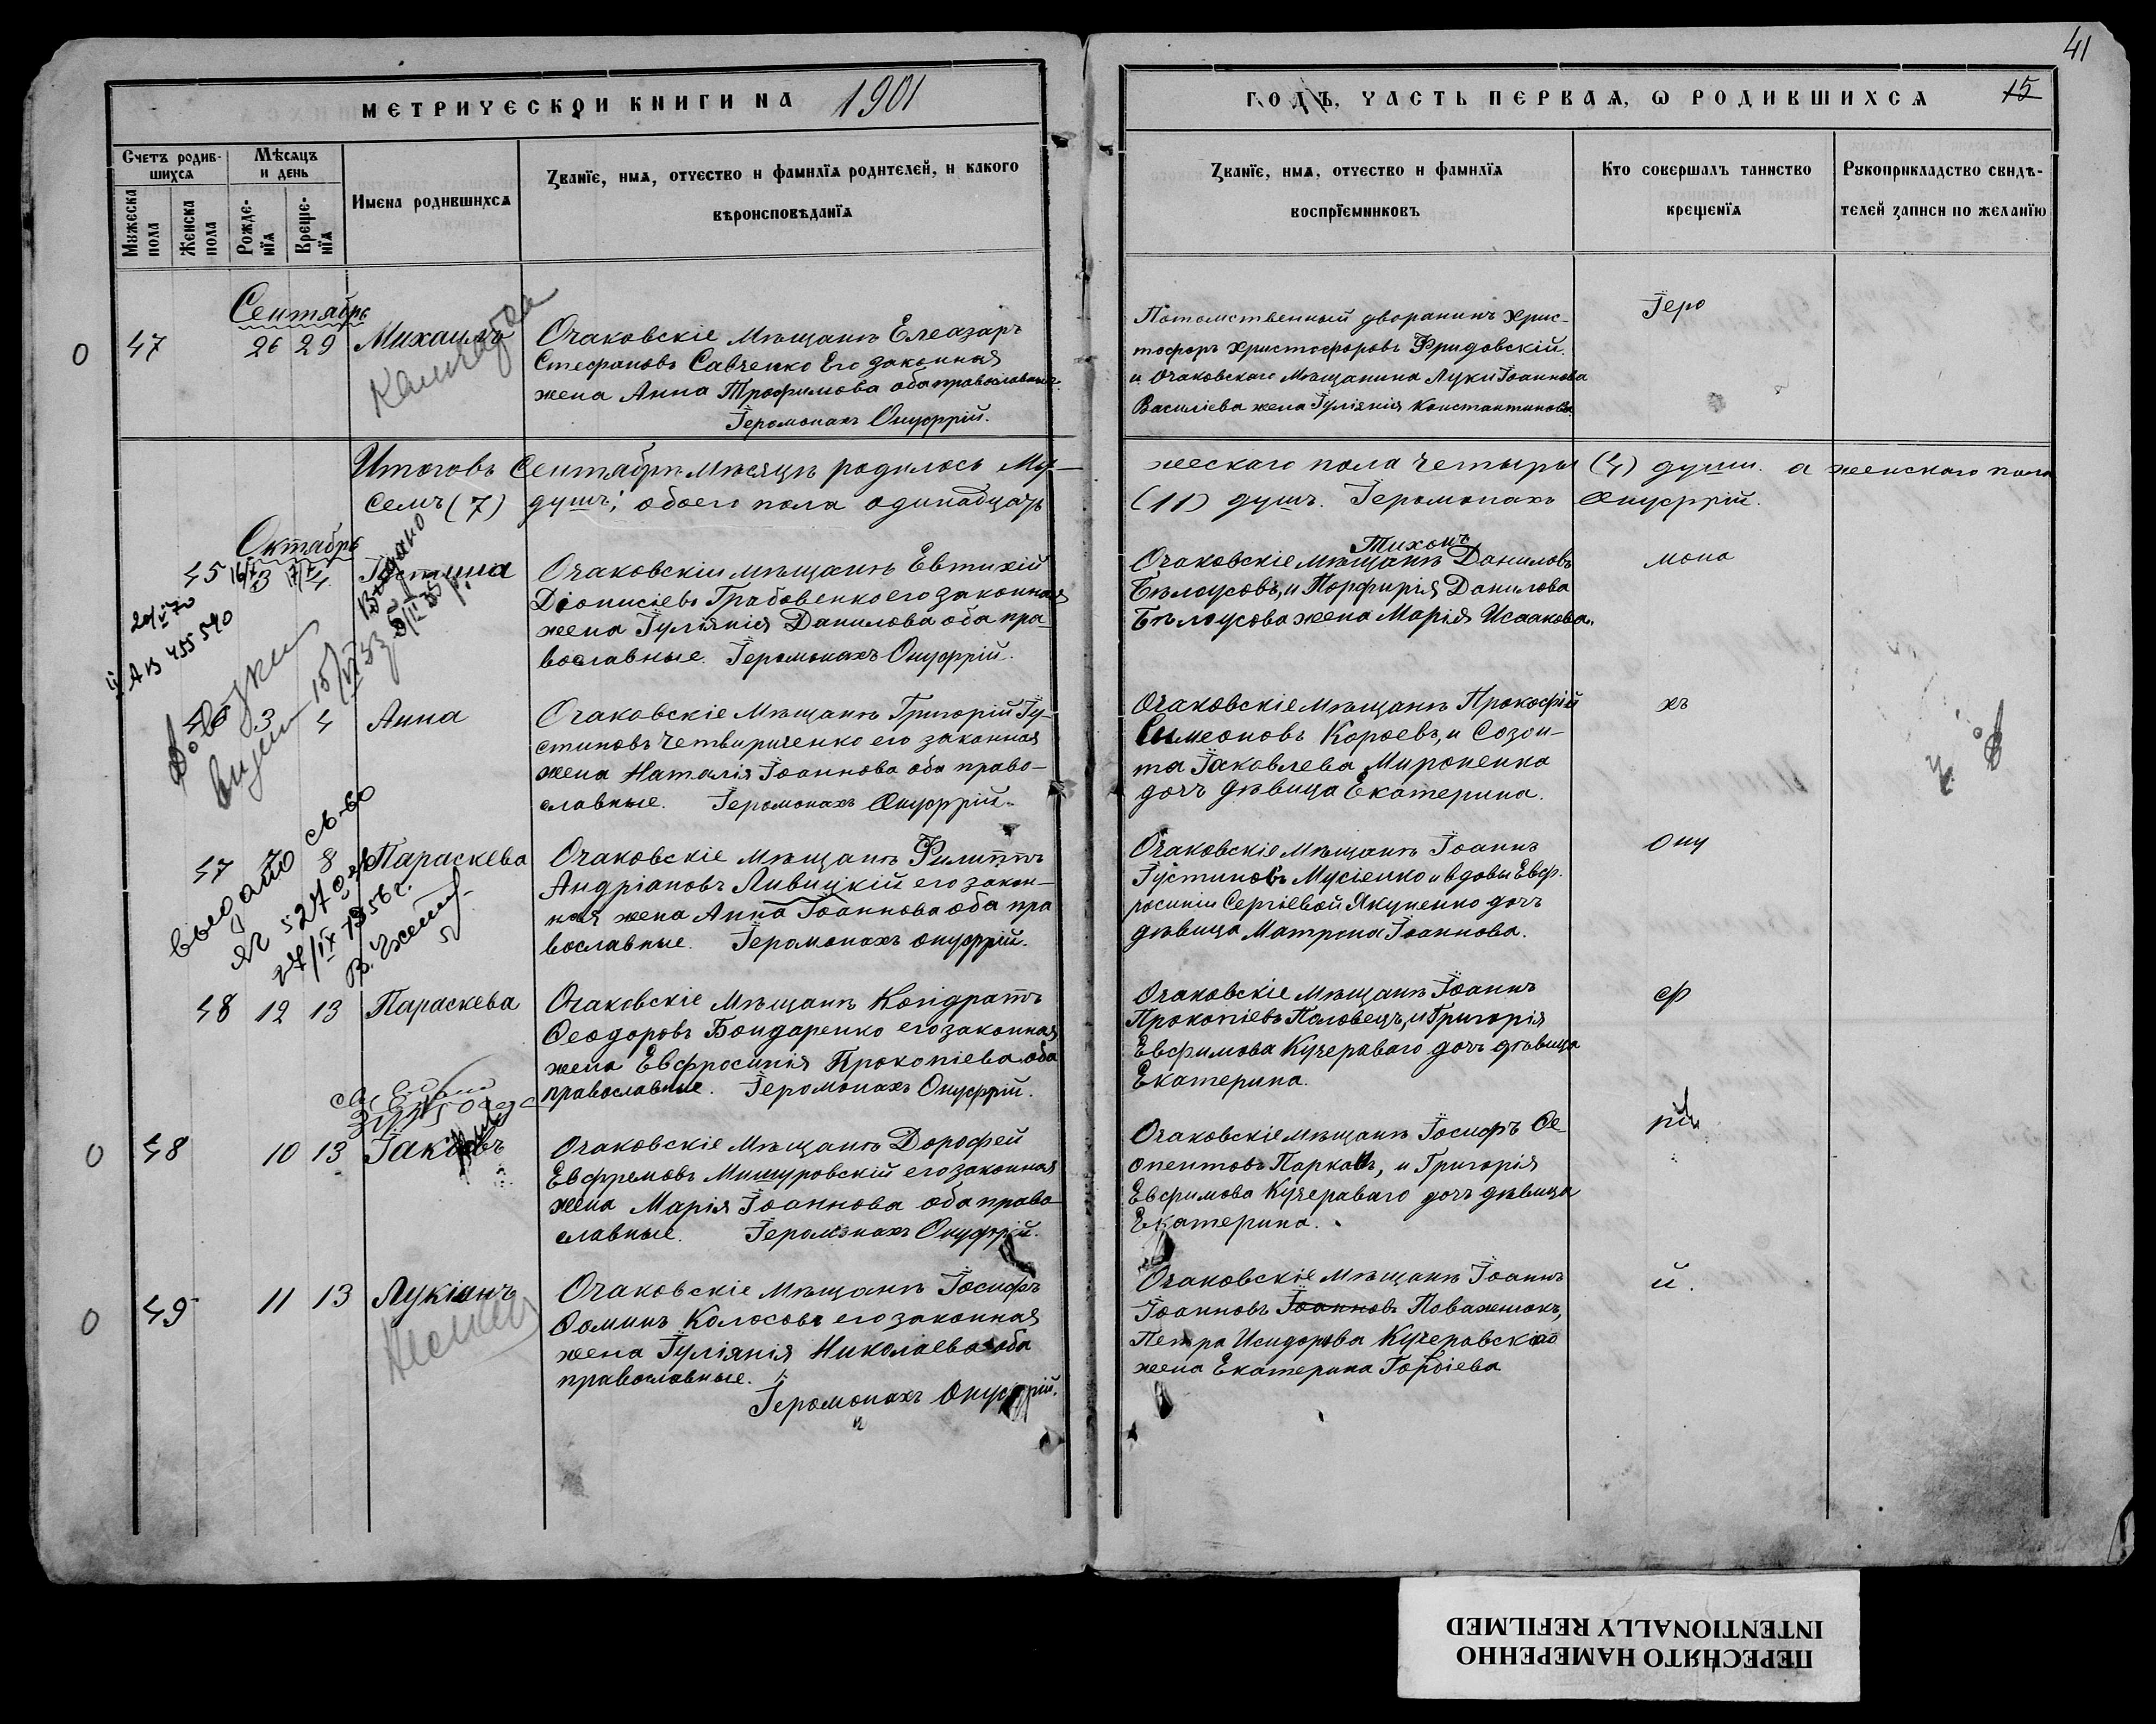 41
МЕТРИЧЕСКОИ КНИГИ НА 1901
ГОДЪ, ЧАСТЬ ПЕРВАЯ, Ѡ РОДИВШИХСЯ 15
Счетъ родив-
шихся
Мѣсяцъ
и день
Мужеска
пола
Женска
пола
Рожде-
нїя
Креще-
нїя
Имена родившихся
Званїе, имя, отчество и фамилїя родителей, и какого
вѣроисповѣданїя
Званїе, имя, отчество и фамилїя
воспрїемниковъ
Кто совершалъ таинство
крещенїя
Рукоприкладство свидѣ-
телей записи по желанїю
Сентябрь
0 47 26 29 Михаилъ
Очаковскіе мѣщанъ Елеазаръ
Стефановъ Савченко Его законная
жена Анна Трофимова оба православн.
Іеромонахъ Онуфрій.
Потомственный дворанинъ Хрис-
тофоръ Христофоровъ Фридовскій.
и Очаковскаго мѣщанина Луки Іоаннова
Василіева жена Іуліянія Константинова
Іеро
Итоговъ Сентябрѣ мѣсяцѣ родилось Му-
жескаго пола четыры (4) души. а женскаго пола
Семъ (7) душъ; обоего пола одинадцать
(11) душъ. Іеромонахъ Онуфрій.
Октябрь
45 3 4 Іустина
Очаковскіи мѣщанъ Евтихій
Діонисіевъ Грабовенко его законная
жена Іуліянія Данилова оба пра-
вославные. Іеромонахъ Онуфрій.
Тихонъ
Очаковскіе мѣщанъ Даниловъ
Бѣлоусовъ, и Порфирія Данилова
Бѣлоусова жена Марія Исаакова.
мона
20/V 70
II АВ 455590
46 3 4 Анна
Очаковскіе мѣщанъ Григорій Іу-
стиновъ Четвириченко его законная
жена Наталія Іоаннова оба право-
славные. Іеромонахъ Онуфрій.
Очаковскіе мѣщанъ Прокофій
Симеоновъ Короевъ, и Созон-
та Іаковлева Мироненка
дочъ дѣвица Екатерина.
хъ
47 7 8 Параскева
Очаковскіе мѣщанъ Филиппъ
Андріановъ Ливицкій его закон-
ная жена Анна Іоаннова оба пра
вославные. Іеромонахъ Онуфрій.
Очаковскіе мѣщанъ Іоаннъ
Іустиновъ Мусіенко и вдовы Евф.
росиніи Сергіевой Якуненко дочъ
дѣвица Матрона Іоаннова.
ону
выдано св-во
48 12 13 Параскева
Очаковскіе мѣщанъ Кондратъ
Феодоровъ Бондаренко его законная
жена Евфросинія Прокопіева оба
православные. Іеромонахъ Онуфрій.
Очаковскіе мѣщанъ Іоаннъ
Прокопіевъ Половецъ, и Григорія
Евфимова Кучераваго дочъ дѣвица
Екатерина.
ф
0 48 10 13 Іаковъ
Очаковскіе мѣщанъ Дорофей
Евфремовъ Мишуровскій его законная
жена Марія Іоаннова оба право-
славные. Іеромонахъ Онуфрій.
Очаковскіе мѣщанъ Іосифъ Ѳе-
опентовъ Паркавъ, и Григорія
Евфимова Кучераваго дочъ дѣвица
Екатерина.
рі
0 49 11 13 Лукіанъ
Очаковскіе мѣщанъ Іосифъ
Фоминъ Колосовъ его законная
жена Іуліянія Николаева оба
православные.
Іеромонахъ Онуфрій.
Очаковскіе мѣщанъ Іоаннъ
Іоанновъ Іоанновъ Поваженюкъ,
Петра Исидорова Кучеравскаго
жена Екатерина Гордіева
й.
ПЕРЕСНЯТО НАМЕРЕННО
INTENTIONALLY REFILMED